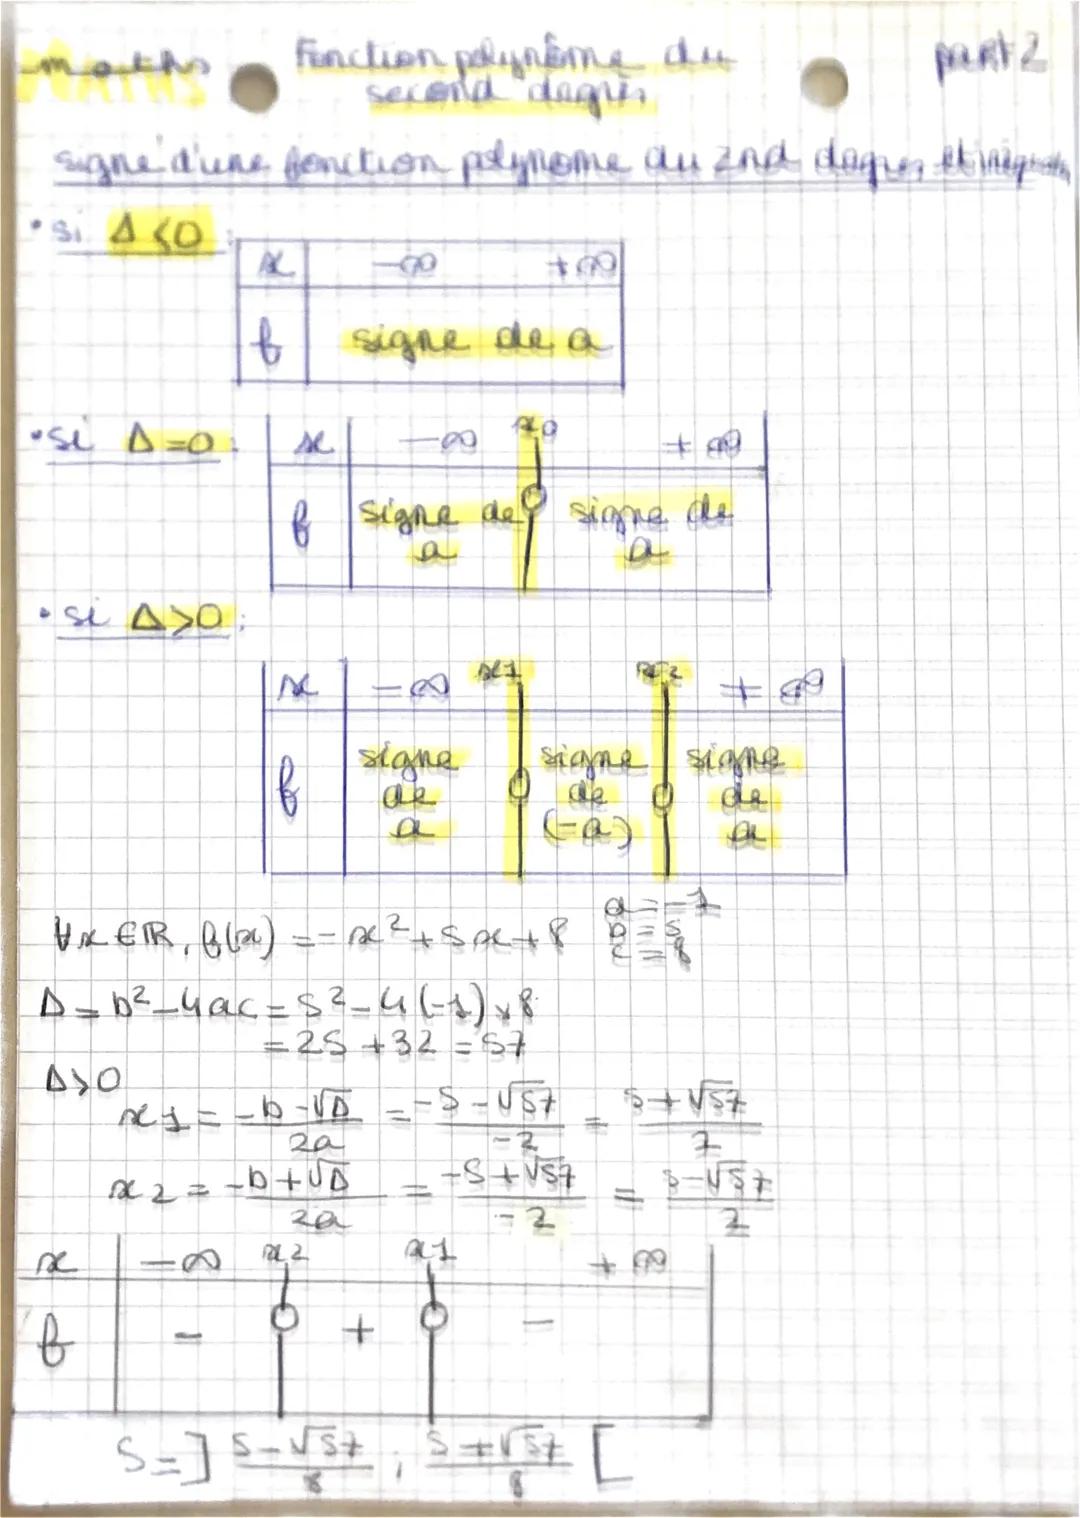 maths Fonction polynôme du part 2
MATHS second dagrès
signe d'une fonction polynome du 2nd dagrés et
• si Δ<0 :
x -∞ +∞
f signe de a
• si Δ=0 :
x -∞ x0 +∞
f signe de a signe de a
• si Δ>0 :
x -∞ x1 x2 +∞
f signe de a signe de (-a) signe de a
∀x ∈ ℝ, f(x) = -x²+5x+8 a=-1 b=5 c=8
Δ = b²-4ac = 5²-4(-1)×8
= 25+32 = 57
Δ>0
x1 = (-b-√Δ)/2a = (-5-√57)/-2 = (5+√57)/2
x2 = (-b+√Δ)/2a = (-5+√57)/-2 = (5-√57)/2
x -∞ x2 x1 +∞
f - + -
S=] (5-√57)/8 ; (5+√57)/8 [